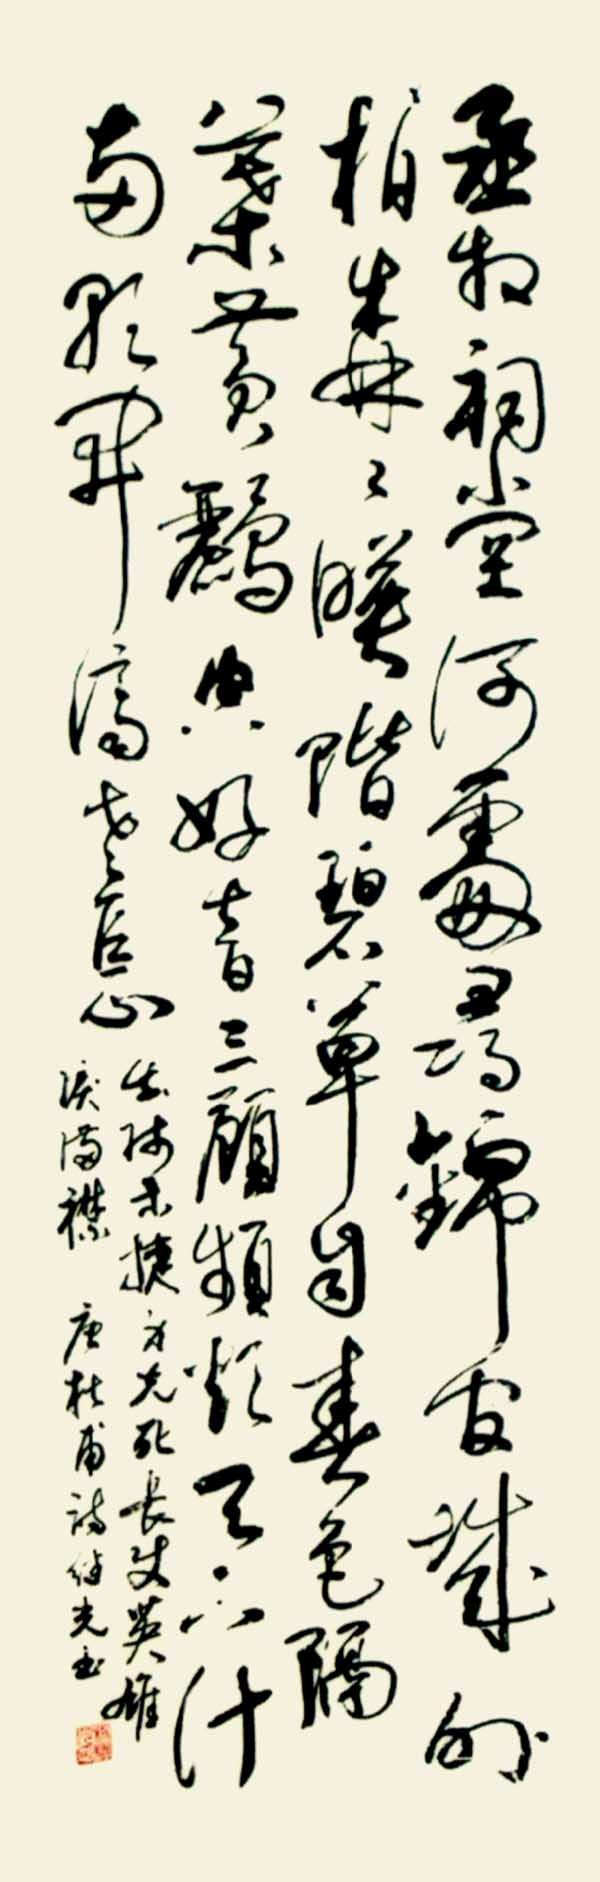 丞相祠堂何處尋錦官城外
柏森〻暎階碧草自春色隔
葉黃鸝空好音三顧頻煩天下計
兩朝開濟老臣心
出師未捷身先死長使英雄
淚滿襟 唐杜甫詩 光書